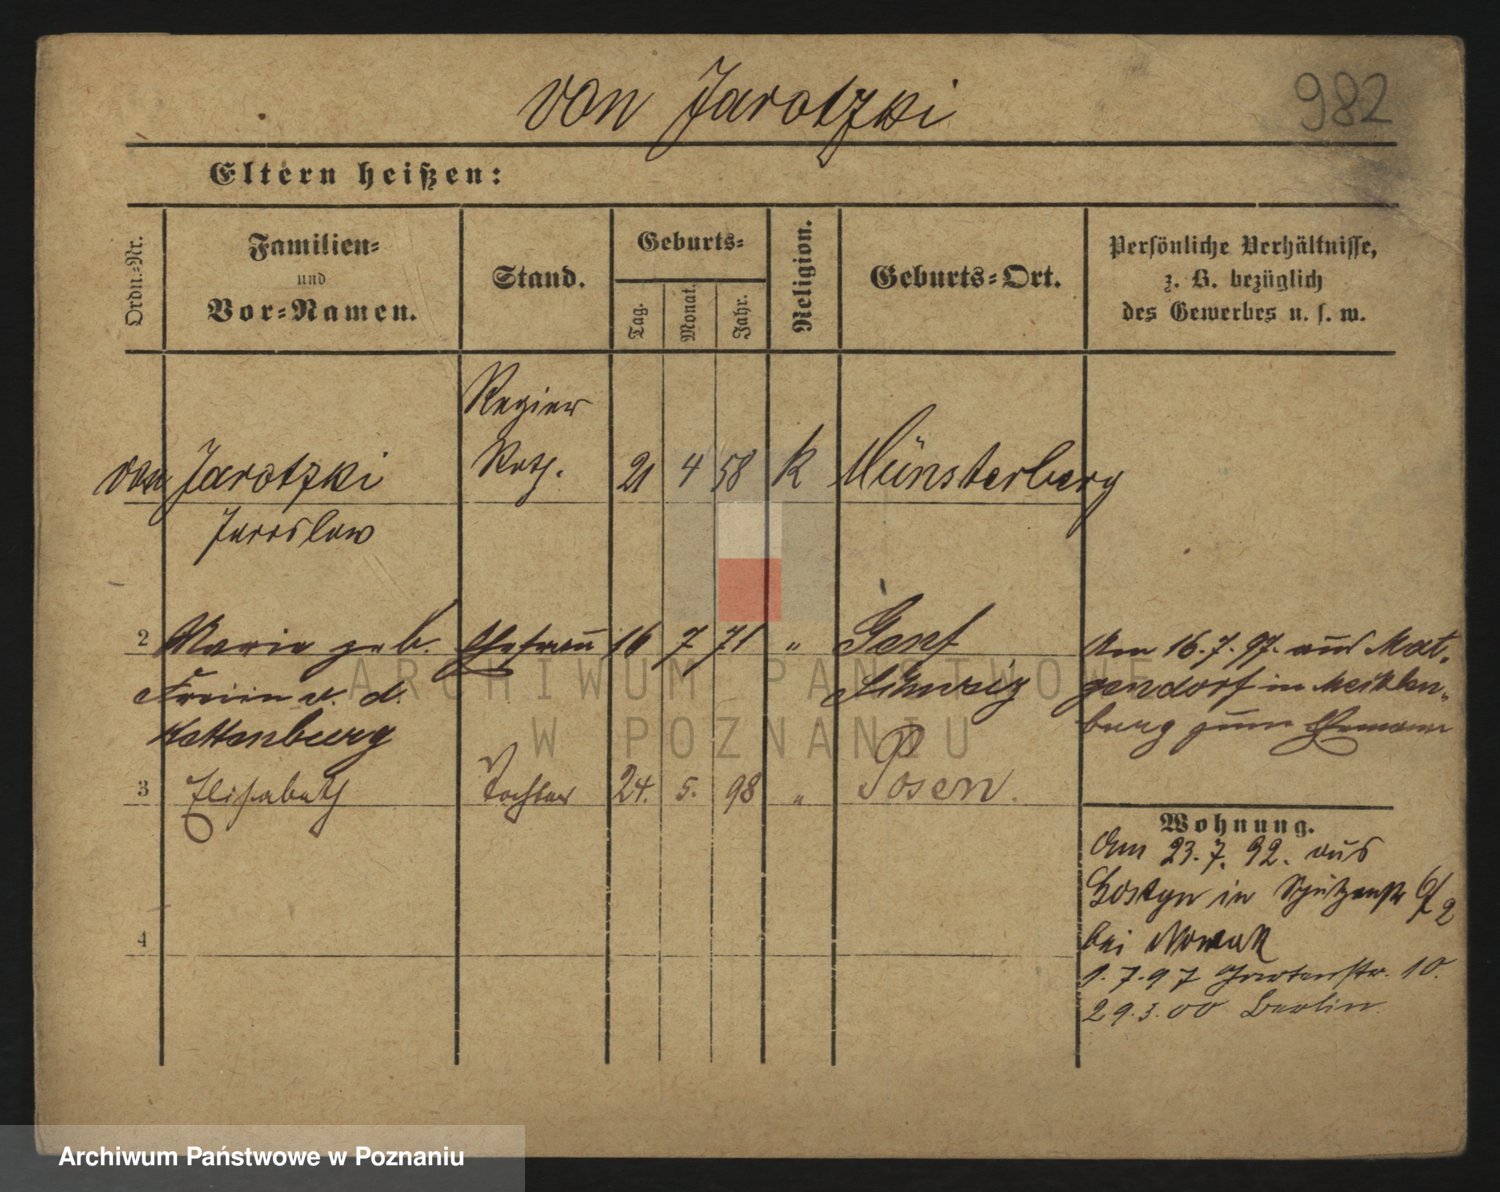 von Jarotzki
982
Eltern heißen:
Ordn.-Nr.
Familien-
und
Vor-Namen.
Stand.
Geburts-
Tag.
Monat.
Jahr.
Religion.
Geburts-Ort.
Persönliche Verhältnisse,
z. B. bezüglich
des Gewerbes u. s. w.
von Jarotzki
Jaroslaw
Regier
Rath.
21 4 58 k Münsterberg
2 Maria geb.
Freiin v. d.
Kettenburg
Ehefrau 16 7 71 " Genf
Schweiz
Am 16.7.97. aus Mat-
gendorf in Mecklen-
burg zum Ehemann
3 Elisabeth Tochter 24. 5. 98 " Posen.
4
Wohnung.
Am 23.7.92. aus
Gostyn in Schützenstr
bei Nowak
1.7.97 Gartenstr. 10.
29.3.00 Berlin.
ARCHIWUM PAŃSTWOWE
W POZNANIU
Archiwum Państwowe w Poznaniu